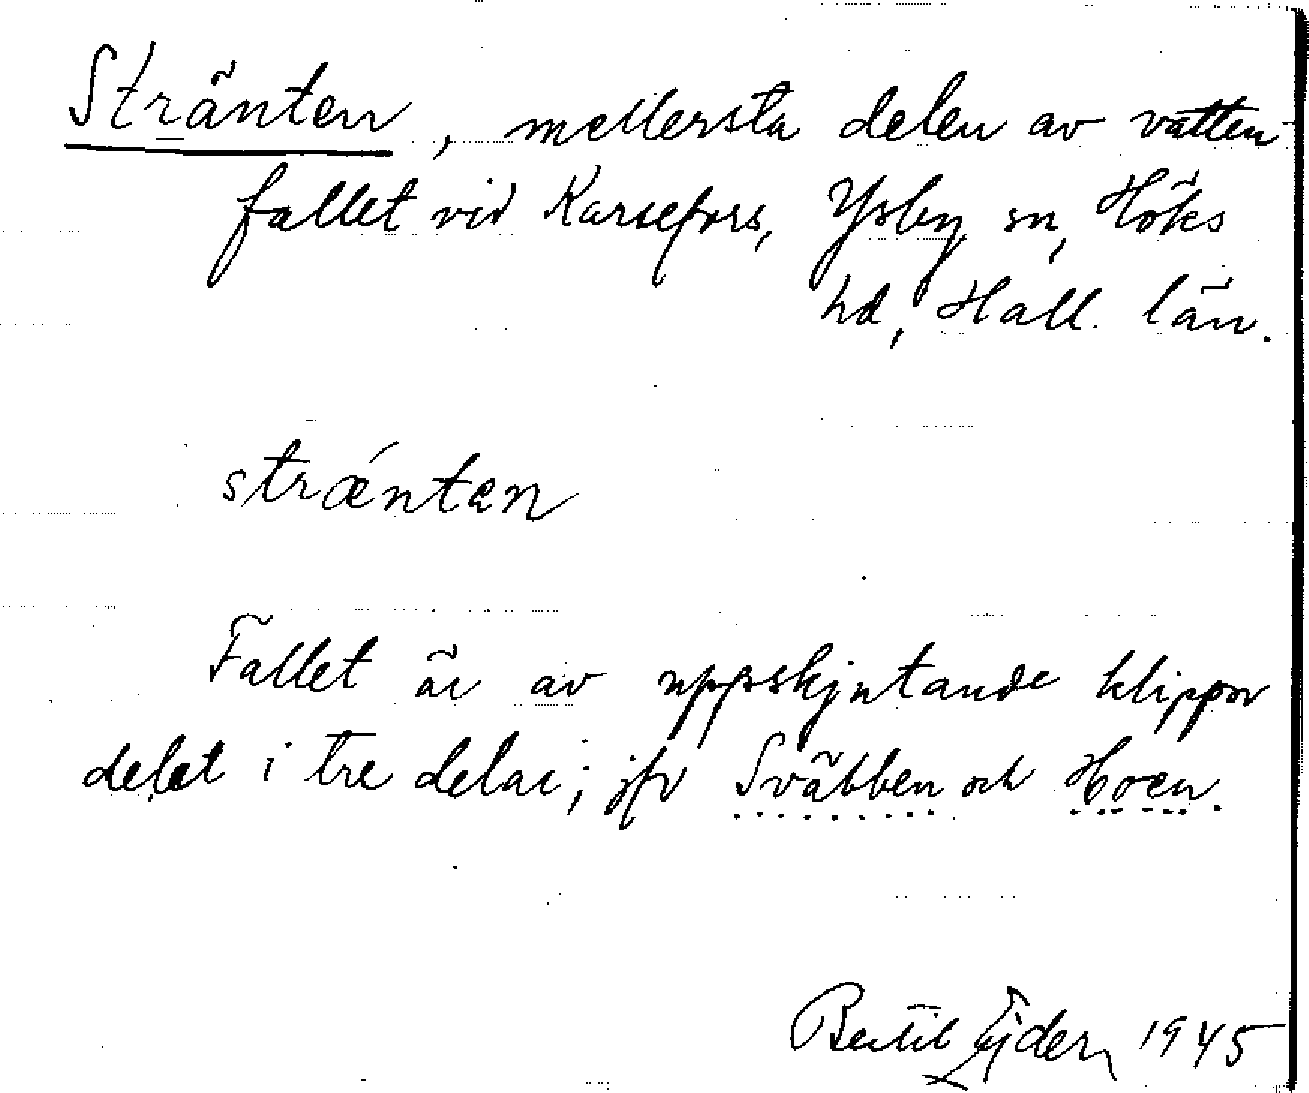 Stränten, mellersta delen av vatten
fallet vid Karsefors, Ysby sn, Höks
hd, Hall. län.
strǽntæn
Fallet är av uppskjutande klippor
delat i tre delar; jfr Sväbben och Hoen.
Bertil Ejder 1945